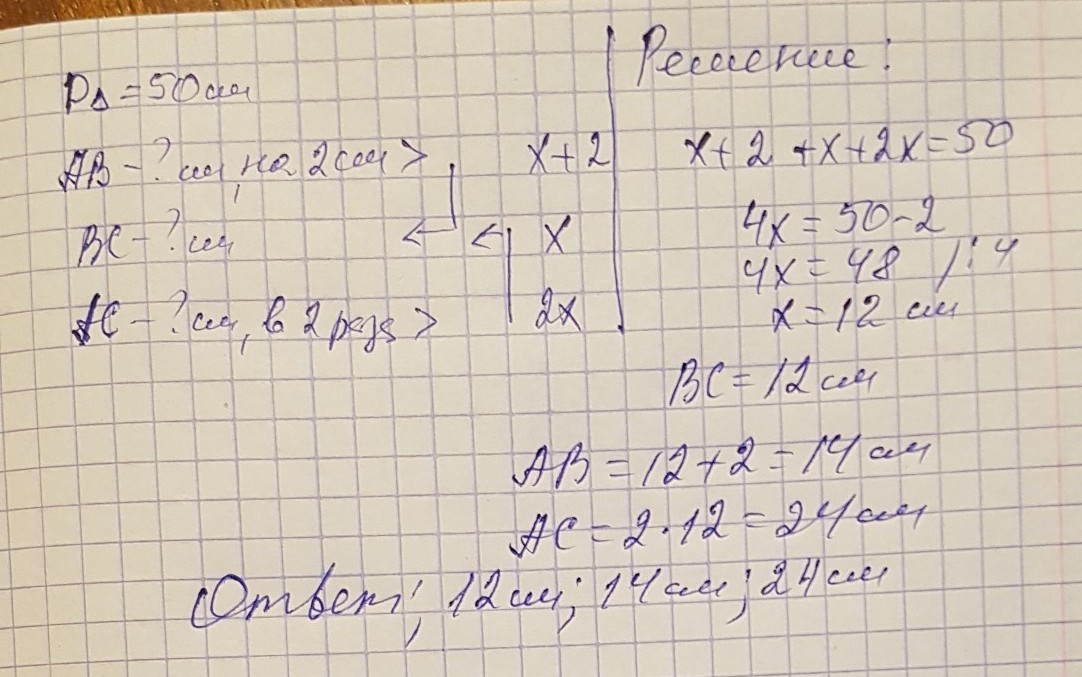 P△ = 50 см
АВ - ? см, на 2 см > x + 2
ВС - ? см ← ← x
АС - ? см, в 2 раза > 2x
Решение:
x + 2 + x + 2x = 50
4x = 50 - 2
4x = 48 /:4
x = 12 см
ВС = 12 см
АВ = 12 + 2 = 14 см
АС = 2 · 12 = 24 см
Ответ; 12 см; 14 см; 24 см